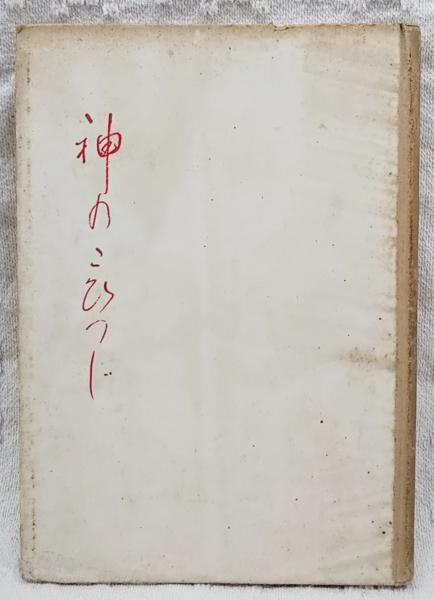 神のこひつじ